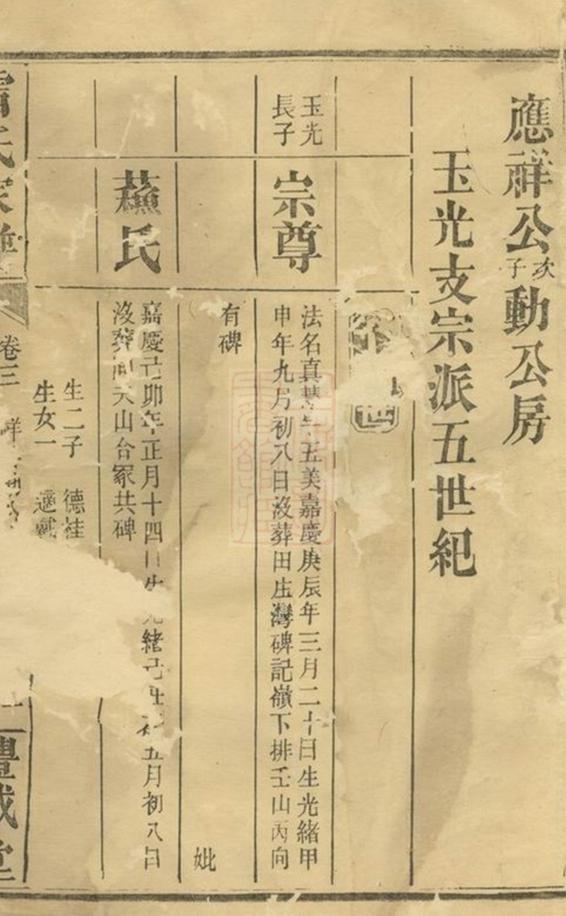 應祥公次子動公房
玉光支宗派五世紀
世
玉光長子
宗尊
法名真五美嘉慶庚辰年三月二十日生光緒甲
申年九月初八日沒葬田庄灣碑記嶺下排壬山丙向
有碑 妣
蘇氏
嘉慶己卯年正月十四日生光緒己年五月初八日
沒葬天山台冢共碑
生二子 德桂
生女一 適戴
氏家
卷三
堂